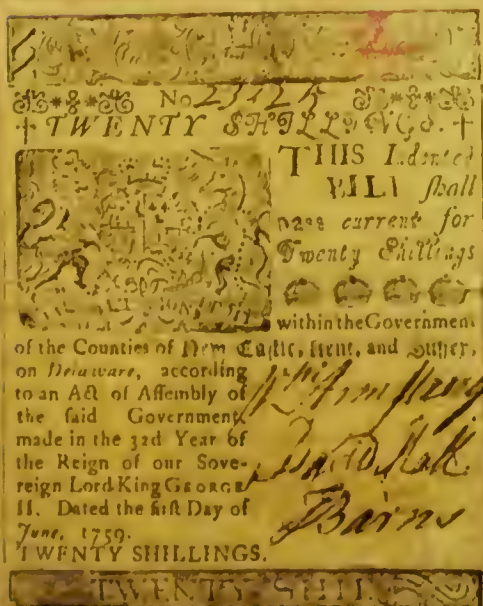 No
TWENTY SHILLINGS.
THIS Indented
BILL ſhall
paſs current for
Twenty Shillings
within the Government
of the Counties of New Caſtle, Kent, and Suſſex,
on Delaware, according
to an Act of Aſſembly of
the ſaid Government,
made in the 32d Year of
the Reign of our Sove-
reign Lord King GEORGE
II. Dated the firſt Day of
June, 1759.
David Hall
Barns
TWENTY SHILLINGS.
TWENTY SHIL